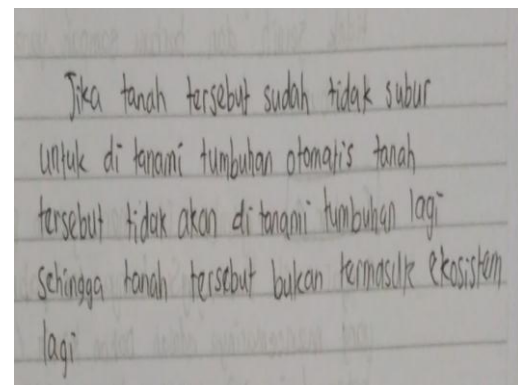 Jika tanah tersebut sudah tidak subur
untuk di tanami tumbuhan otomatis tanah
tersebut tidak akan di tanami tumbuhan lagi
sehingga tanah tersebut bukan termasuk ekosistem
lagi